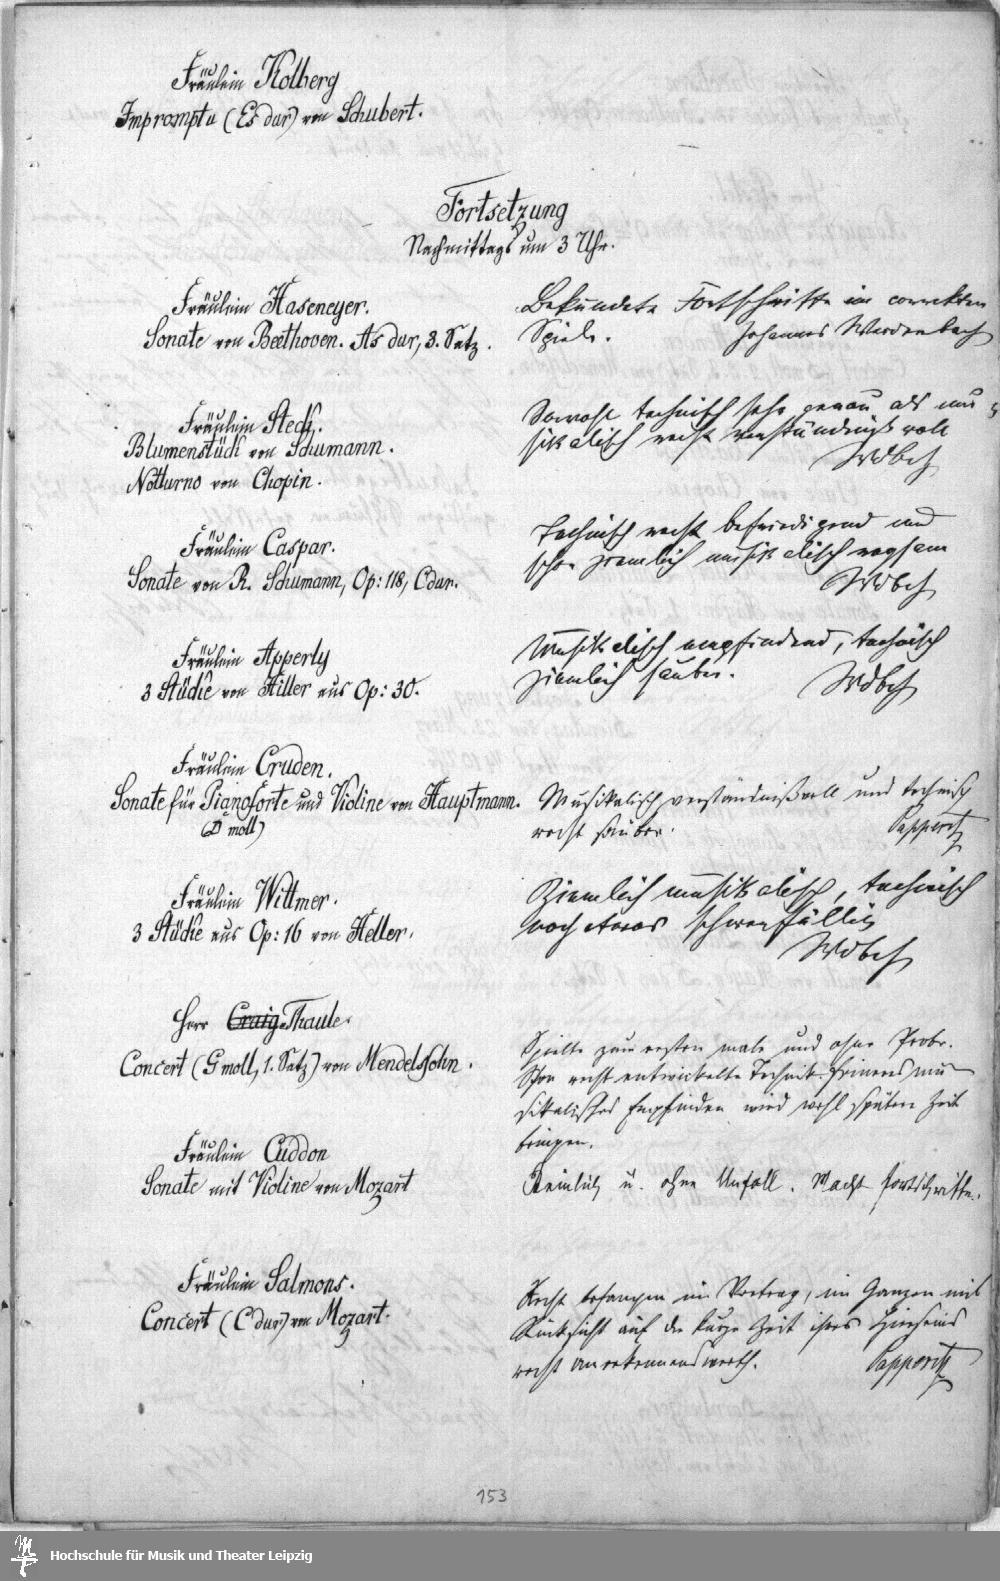 Fräulein Kolberg
Impromptu (Es dur) von Schubert.
Fortsetzung
Nachmittags um 3 Uhr.
Fräulein Haseneyer.
Sonate von Beethoven. As dur, 3. Satz.
Bekundete Fortschritte im correkten
Spiele. Johannes Weidenbach
Fräulein Steck.
Blumenstück von Schumann.
Notturno von Chopin.
Sowohl technisch sehr genau als mu-
sikalisch recht verständnißvoll
Wdbch
Fräulein Caspar.
Sonate von R. Schumann, Op: 118, C dur.
Technisch recht befriedigend und
schon ziemlich musikalisch regsam
Wdbch
Fräulein Apperly
3 Stücke von Hiller aus Op: 30.
Musikalisch empfindend, technisch
ziemlich sauber. Wdbch
Fräulein Cruden.
Sonate für Pianoforte und Violine von Hauptmann.
(D moll)
Musikalisch verständnißvoll und technisch
recht sauber. Papperitz
Fräulein Wittmer.
3 Stücke aus Op: 16 von Heller.
Ziemlich musikalisch, technisch
noch etwas schwerfällig
Wdbch
Herr Craig-Thaule.
Concert (G moll, 1. Satz) von Mendelssohn.
Spielte zum ersten male und ohne Probe.
Schon recht entwickelte Technik. Feineres mu-
sikalisches Empfinden wird wohl spätere Zeit
bringen.
Fräulein Cuddon
Sonate mit Violine von Mozart
Reinlich u. ohne Unfall. Macht Fortschritte.
Fräulein Salmons.
Concert (C dur) von Mozart.
Recht befangen im Vortrag, im Ganzen mit
Rücksicht auf die kurze Zeit ihres Hierseins
recht anerkennenswerth. Papperitz
153
Hochschule für Musik und Theater Leipzig